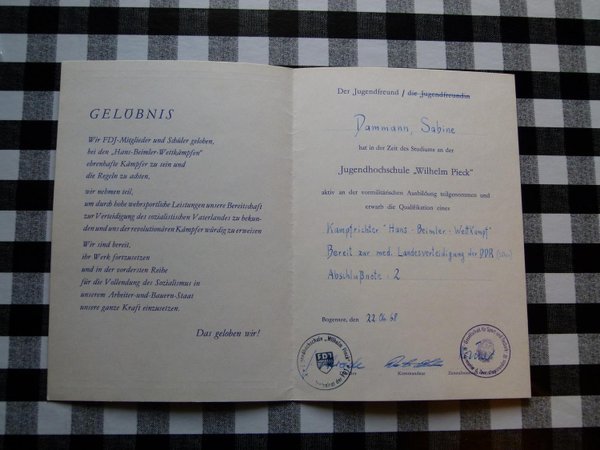 GELÖBNIS
Wir FDJ-Mitglieder und Schüler geloben,
bei den „Hans-Beimler-Wettkämpfen”
ehrenhafte Kämpfer zu sein und
die Regeln zu achten,
wir nehmen teil,
um durch hohe wehrsportliche Leistungen unsere Bereitschaft
zur Verteidigung des sozialistischen Vaterlandes zu bekun-
den und uns der revolutionären Kämpfer würdig zu erweisen
Wir sind bereit,
ihr Werk fortzusetzen
und in der vordersten Reihe
für die Vollendung des Sozialismus in
unserem Arbeiter-und-Bauern-Staat
unsere ganze Kraft einzusetzen.
Das geloben wir!
Der Jugendfreund / die Jugendfreundin
Dammann, Sabine
hat in der Zeit des Studiums an der
Jugendhochschule „Wilhelm Pieck”
aktiv an der vormilitärischen Ausbildung teilgenommen und
erwarb die Qualifikation eines
Kampfrichter "Hans-Beimler-Wettkampf"
Bereit zur med. Landesverteidigung der DDR
Abschlußnote: 2
Bogensee, den 22.06.68
Kommandeur
Jugendhochschule „Wilhelm Pieck”
FDJ